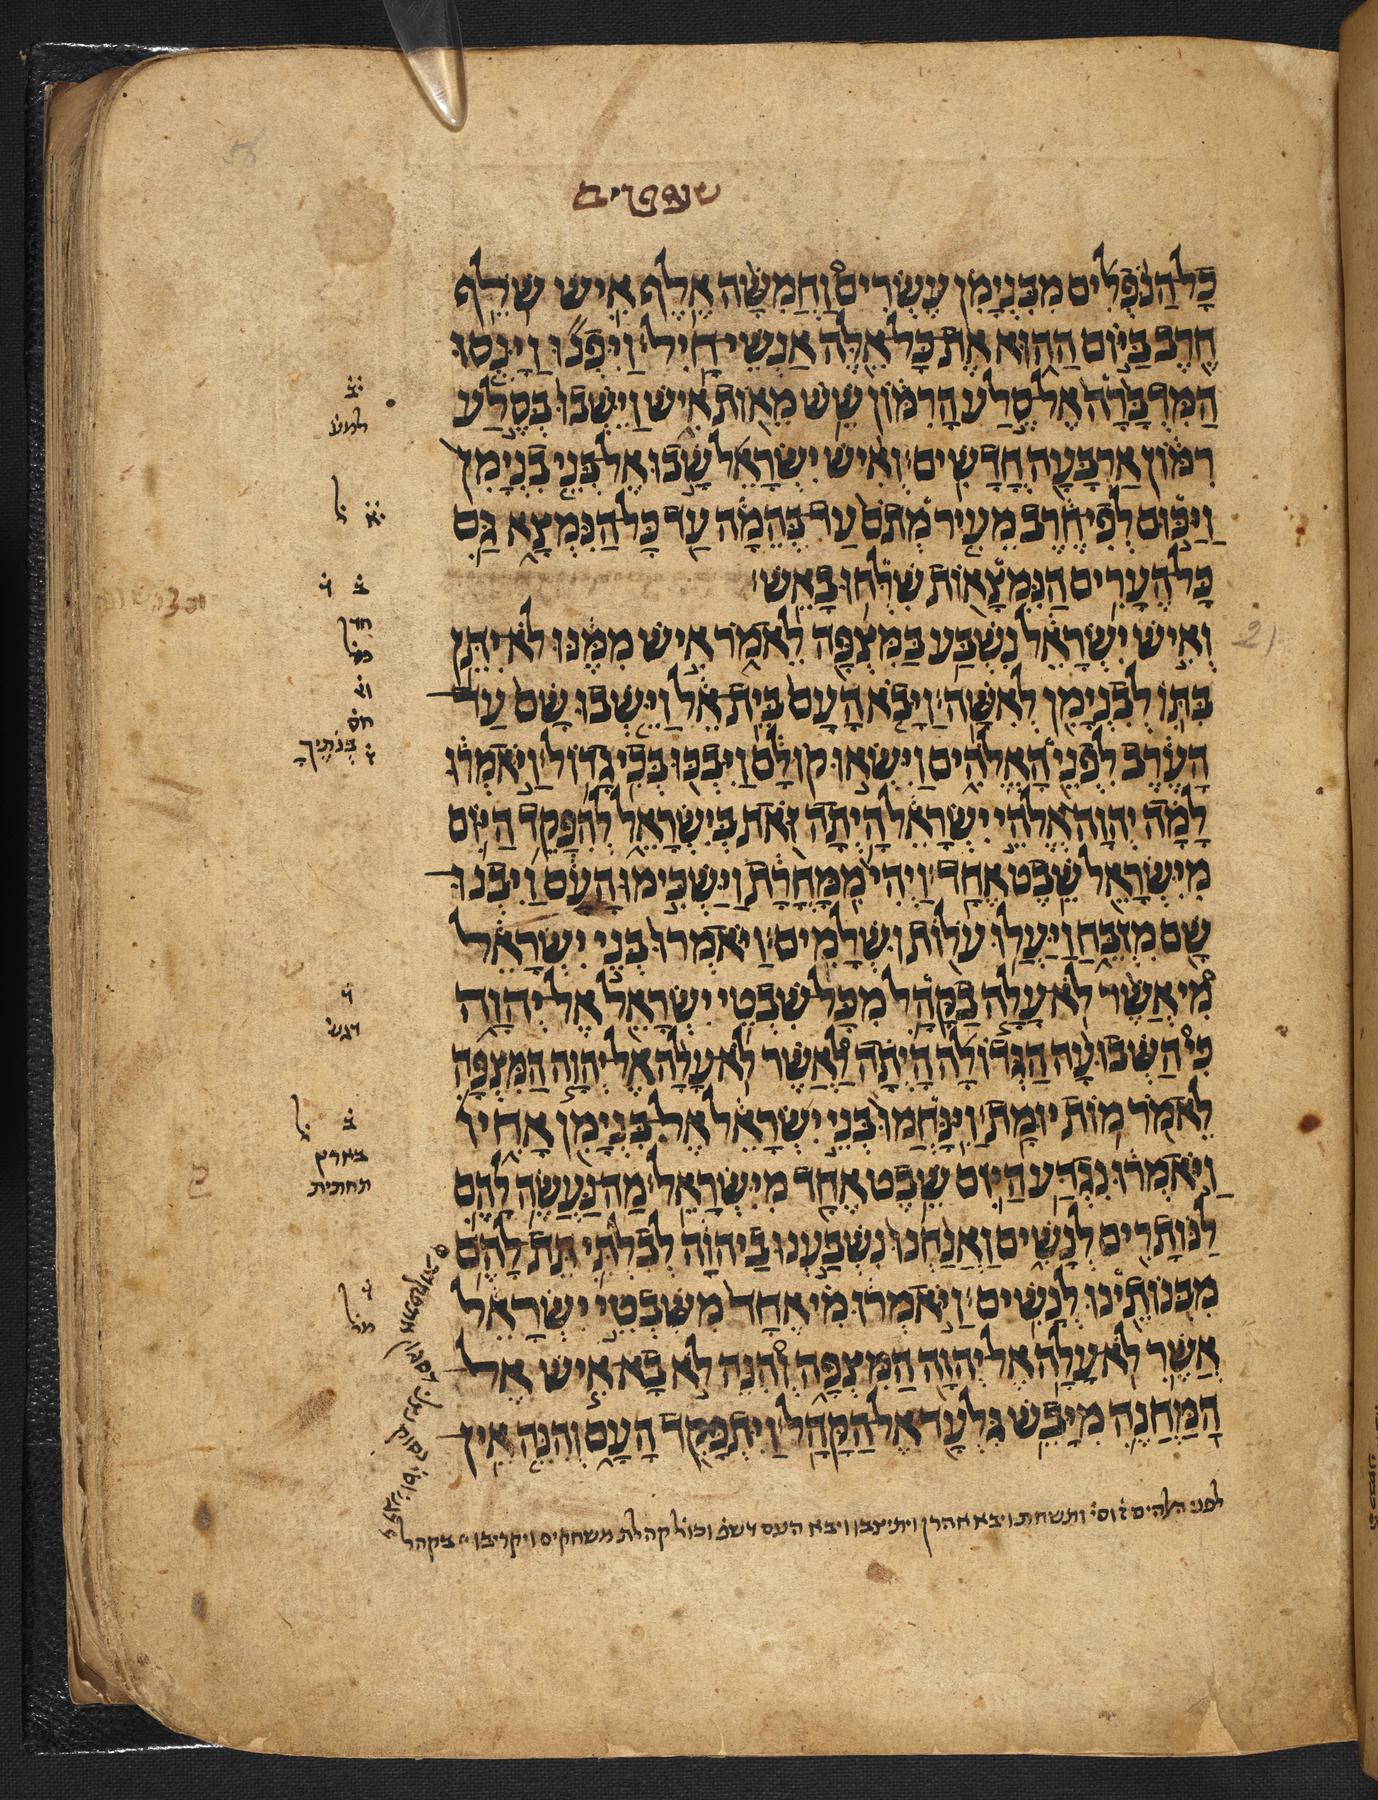 שופטים
כָּל הַנֹּפְלִים מִבִּנְיָמִן עֶשְׂרִים וַחֲמִשָּׁה אֶלֶף אִישׁ שֹׁלֵף
חֶרֶב בַּיּוֹם הַהוּא אֶת כָּל אֵלֶּה אַנְשֵׁי חָיִל׃ וַיִּפְנוּ וַיָּנֻסוּ
הַמִּדְבָּרָה אֶל סֶלַע הָרִמּוֹן שֵׁשׁ מֵאוֹת אִישׁ וַיֵּשְׁבוּ בְּסֶלַע
רִמּוֹן אַרְבָּעָה חֳדָשִׁים׃ וְאִישׁ יִשְׂרָאֵל שָׁבוּ אֶל בְּנֵי בִנְיָמִן
וַיַּכּוּם לְפִי חֶרֶב מֵעִיר מְתֹם עַד בְּהֵמָה עַד כָּל הַנִּמְצָא גַּם
כָּל הֶעָרִים הַנִּמְצָאוֹת שִׁלְּחוּ בָאֵשׁ׃
וְאִישׁ יִשְׂרָאֵל נִשְׁבַּע בַּמִּצְפָּה לֵאמֹר אִישׁ מִמֶּנּוּ לֹא יִתֵּן
בִּתּוֹ לְבִנְיָמִן לְאִשָּׁה׃ וַיָּבֹא הָעָם בֵּית אֵל וַיֵּשְׁבוּ שָׁם עַד
הָעֶרֶב לִפְנֵי הָאֱלֹהִים וַיִּשְׂאוּ קוֹלָם וַיִּבְכּוּ בְּכִי גָדוֹל׃ וַיֹּאמְרוּ
לָמָה יְהוָה אֱלֹהֵי יִשְׂרָאֵל הָיְתָה זֹּאת בְּיִשְׂרָאֵל לְהִפָּקֵד הַיּוֹם
מִיִּשְׂרָאֵל שֵׁבֶט אֶחָד׃ וַיְהִי מִמָּחֳרָת וַיַּשְׁכִּימוּ הָעָם וַיִּבְנוּ
שָׁם מִזְבֵּחַ וַיַּעֲלוּ עֹלוֹת וּשְׁלָמִים׃ וַיֹּאמְרוּ בְּנֵי יִשְׂרָאֵל
מִי אֲשֶׁר לֹא עָלָה בַקָּהָל מִכָּל שִׁבְטֵי יִשְׂרָאֵל אֶל יְהוָה
כִּי הַשְּׁבוּעָה הַגְּדוֹלָה הָיְתָה לַאֲשֶׁר לֹא עָלָה אֶל יְהוָה הַמִּצְפָּה
לֵאמֹר מוֹת יוּמָת׃ וַיִּנָּחֲמוּ בְּנֵי יִשְׂרָאֵל אֶל בִּנְיָמִן אָחִיו
וַיֹּאמְרוּ נִגְדַּע הַיּוֹם שֵׁבֶט אֶחָד מִיִּשְׂרָאֵל׃ מַה נַּעֲשֶׂה לָהֶם
לַנּוֹתָרִים לְנָשִׁים וַאֲנַחְנוּ נִשְׁבַּעְנוּ בַיהוָה לְבִלְתִּי תֵּת לָהֶם
מִבְּנוֹתֵינוּ לְנָשִׁים׃ וַיֹּאמְרוּ מִי אֶחָד מִשִּׁבְטֵי יִשְׂרָאֵל
אֲשֶׁר לֹא עָלָה אֶל יְהוָה הַמִּצְפָּה וְהִנֵּה לֹא בָא אִישׁ אֶל
הַמַּחֲנֶה מִיָּבֵשׁ גִּלְעָד אֶל הַקָּהָל׃ וַיִּתְפָּקֵד הָעָם וְהִנֵּה אֵין
ב
למע
א ל
ב ד
חד
מל
וי
חס
בְּנֹתֶיךָ
ד
דגש
ב ל
בארץ
תחתית
ד
מל
לפני האלהים וסי ותשחת ויבא אהרן ויתיצבו ויבא העם דשפ וכול קהלת משחקים ויקריבו בקהל
21